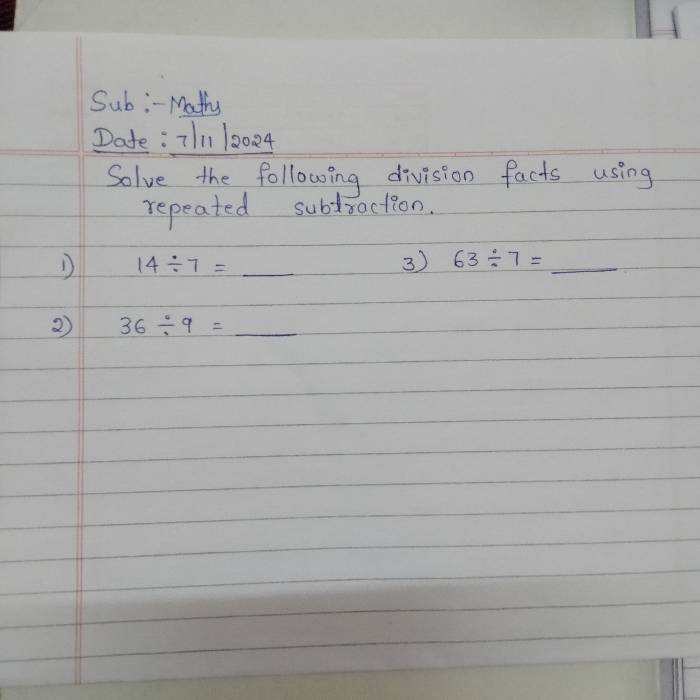 Sub :- Maths
Date : 7/11/2024
Solve the following division facts using
repeated subtraction.
1) 14 ÷ 7 = ____ 3) 63 ÷ 7 = ____
2) 36 ÷ 9 = ____